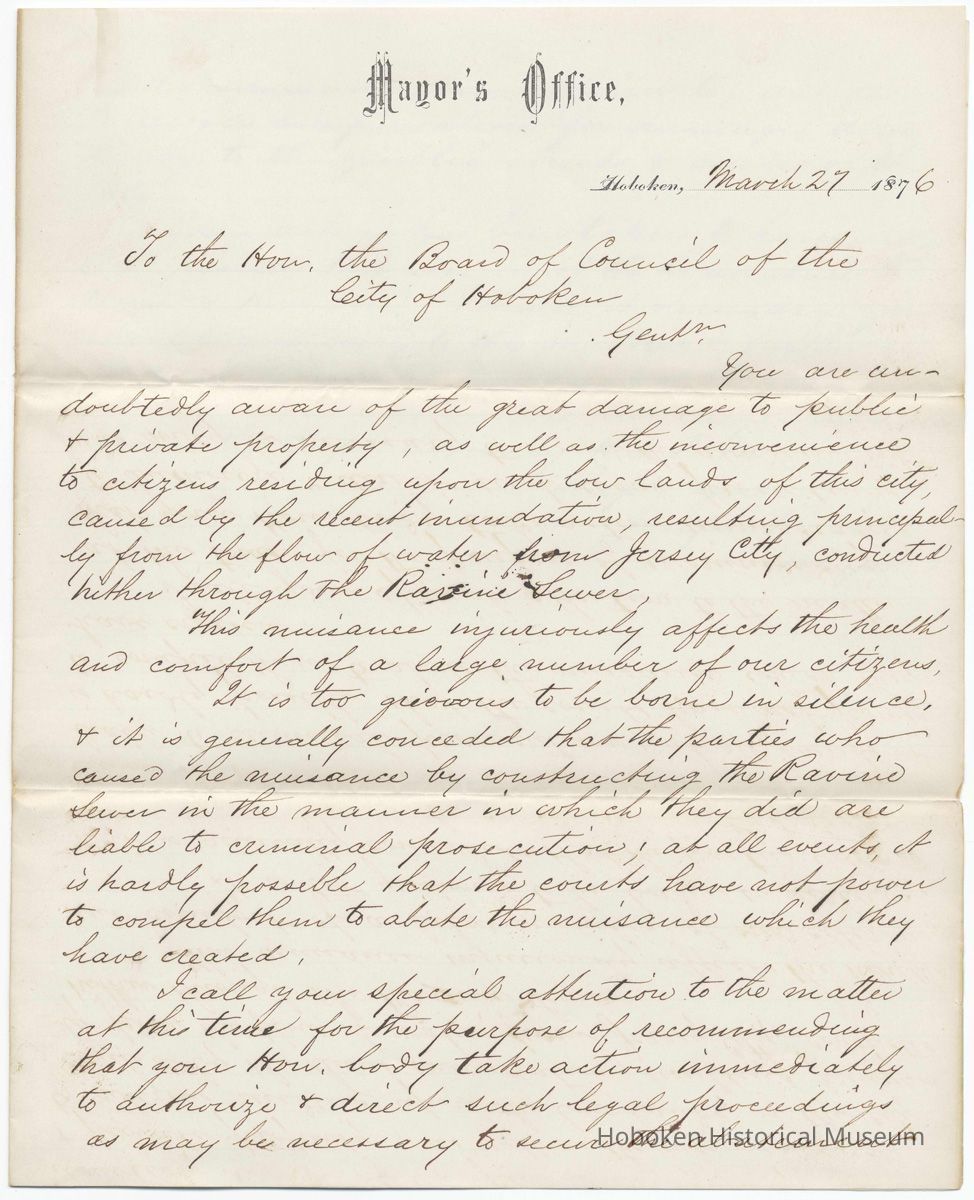 Mayor's Office,
Hoboken, March 27 1876
To the Hon. the Board of Council of the
City of Hoboken
Gentn.
You are un-
doubtedly aware of the great damage to public
& private property, as well as the inconvenience
to citizens residing upon the low lands of this city,
caused by the recent inundation, resulting principal-
ly from the flow of water from Jersey City, conducted
hither through the Ravine Sewer.
This nuisance injuriously affects the health
and comfort of a large number of our citizens.
It is too grievous to be borne in silence,
& it is generally conceded that the parties who
caused the nuisance by constructing the Ravine
Sewer in the manner in which they did are
liable to criminal prosecution; at all events, it
is hardly possible that the courts have not power
to compel them to abate the nuisance which they
have created.
I call your special attention to the matter
at this time for the purpose of recommending
that your Hon. body take action immediately
to authorize & direct such legal proceedings
as may be necessary to secure the abatement
Hoboken Historical Museum